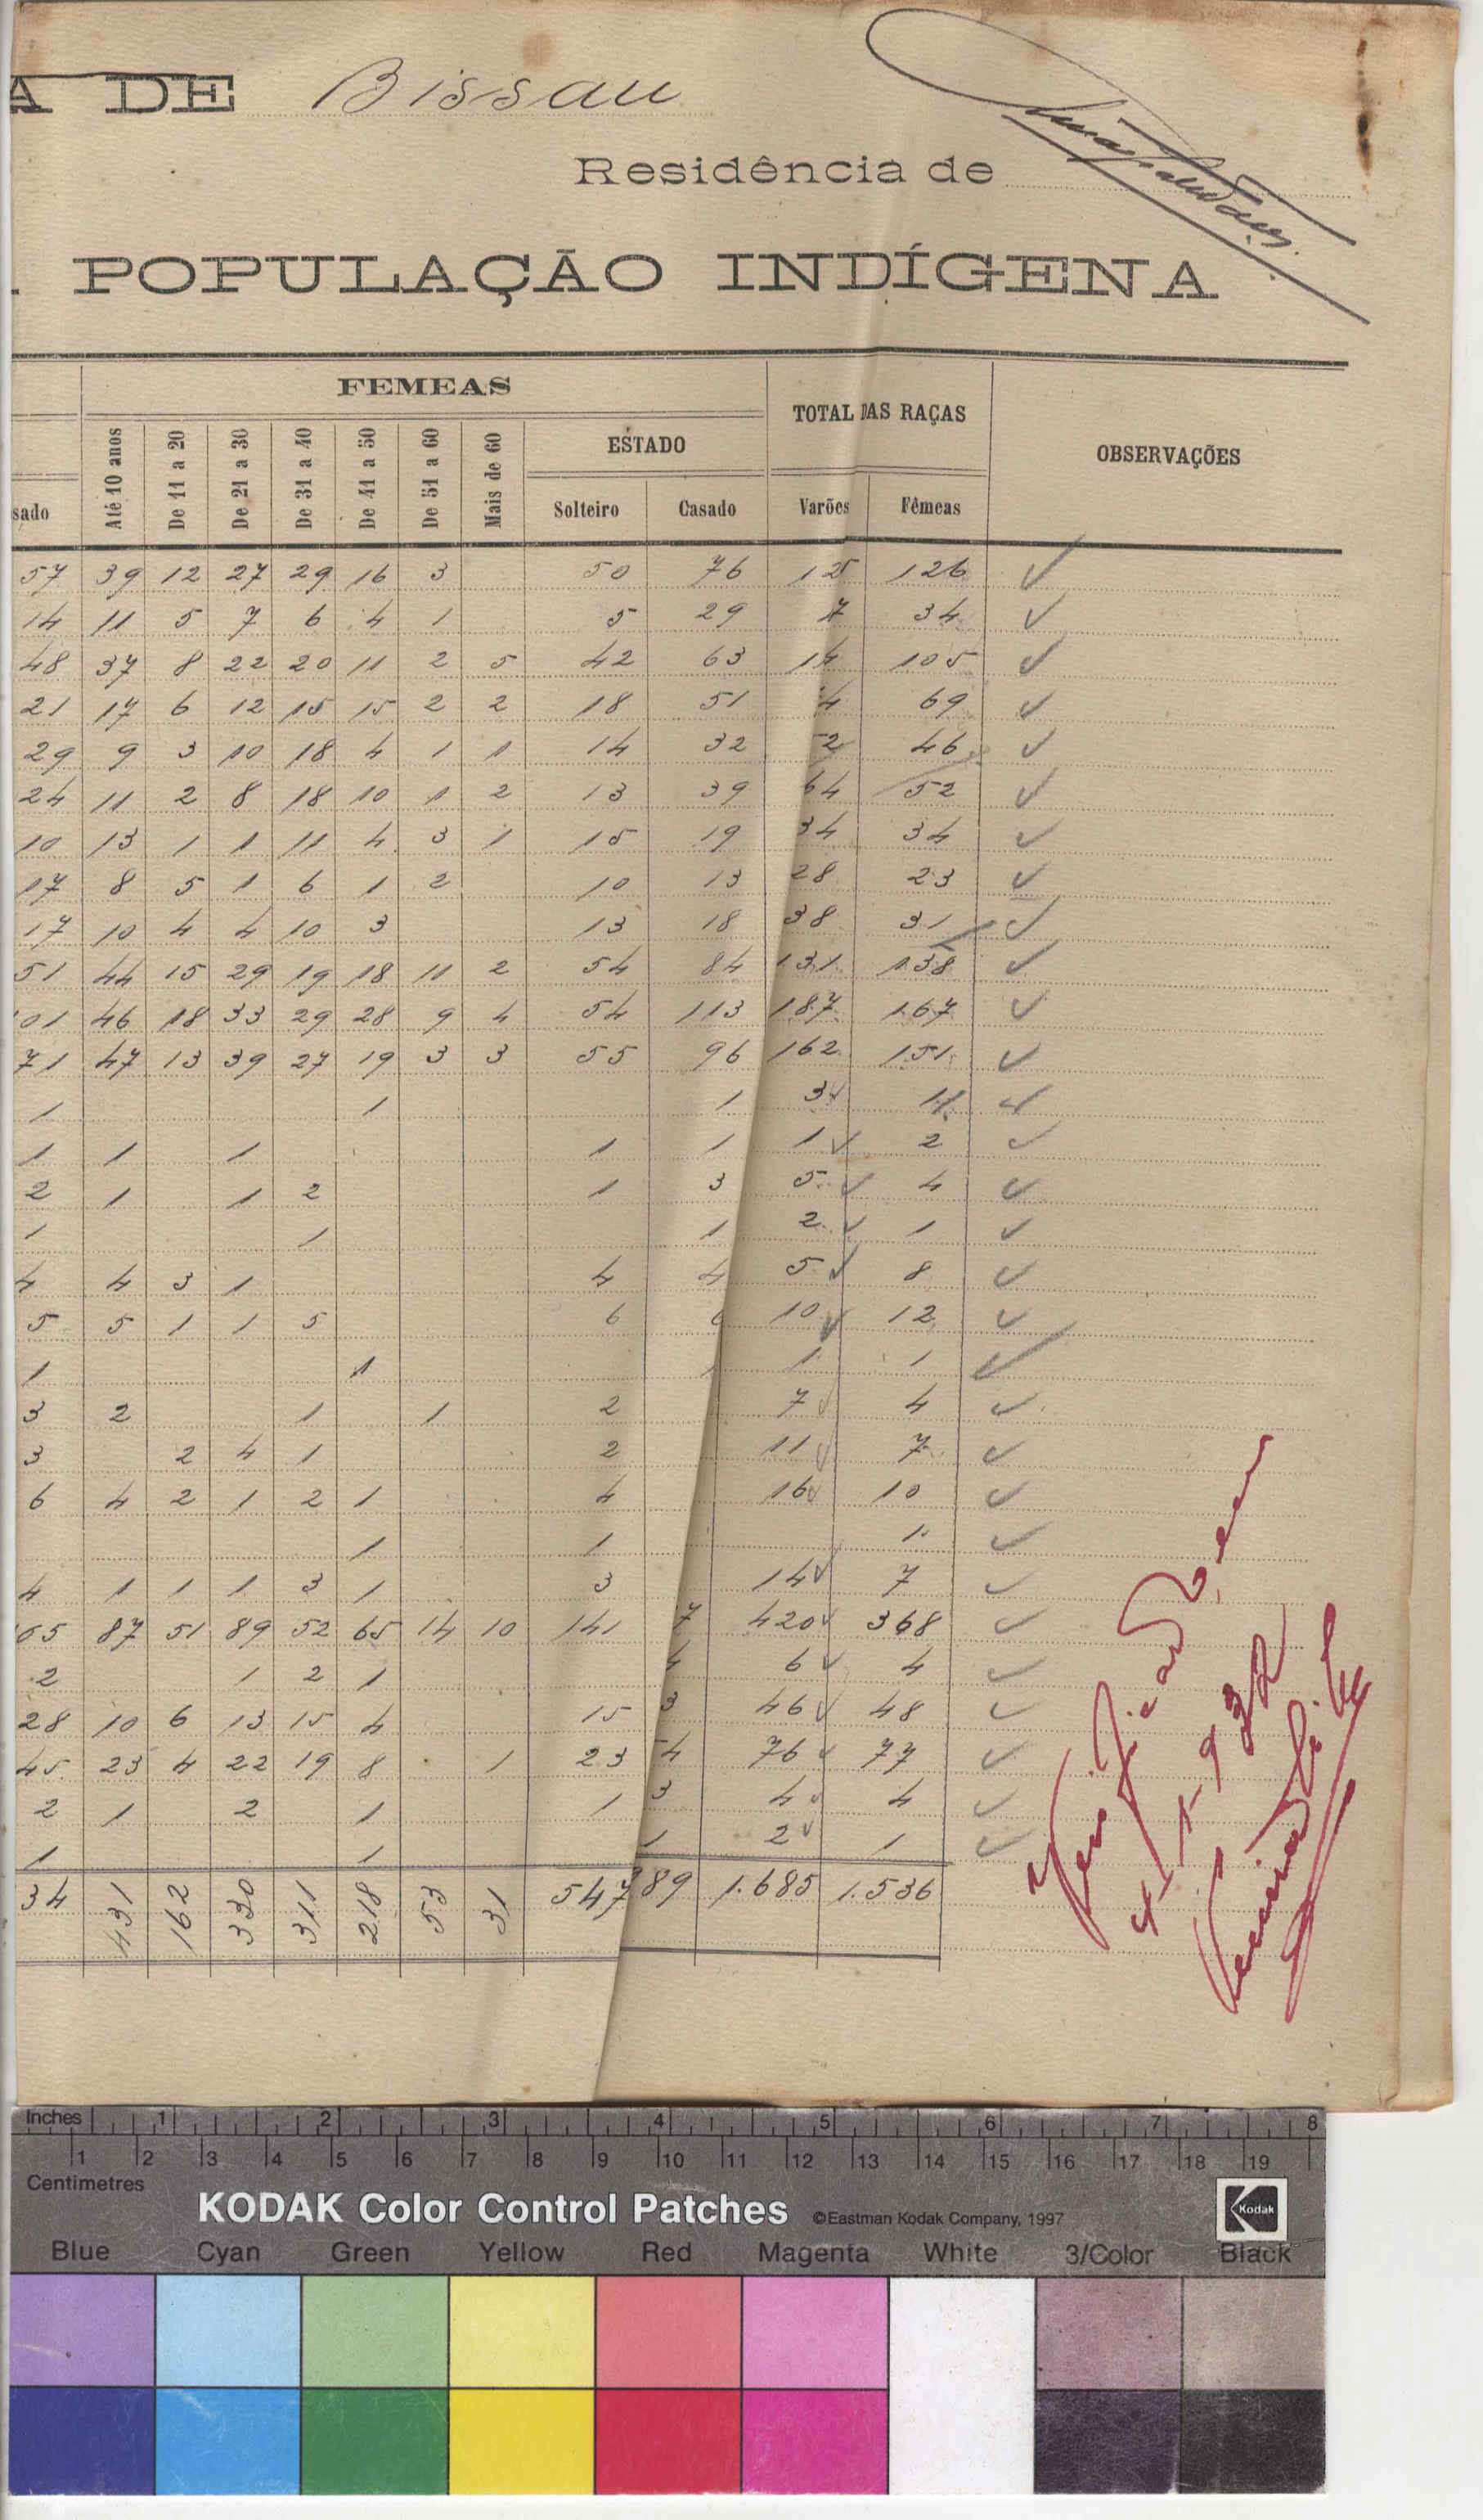 A DE Bissau
Residência de
POPULAÇÃO INDÍGENA
FEMEAS
TOTAL DAS RAÇAS
OBSERVAÇÕES
ESTADO
sado Até 10 anos De 11 a 20 De 21 a 30 De 31 a 40 De 41 a 50 De 51 a 60 Mais de 60 Solteiro Casado Varões Fêmeas
57 39 12 27 29 16 3 50 76 126 ✓
14 11 5 7 6 4 1 5 29 34 ✓
48 37 8 22 20 11 2 5 42 63 105 ✓
21 17 6 12 15 15 2 2 18 51 69 ✓
29 9 3 10 18 4 1 1 14 32 46 ✓
24 11 2 8 18 10 1 2 13 39 64 52 ✓
10 13 1 1 11 4 3 1 15 19 34 34 ✓
17 8 5 1 6 1 2 10 13 28 23 ✓
17 10 4 4 10 3 13 18 38 31 ✓
51 44 15 29 19 18 11 2 54 84 131 138 ✓
01 46 18 33 29 28 9 4 54 113 187 167 ✓
71 47 13 39 27 19 3 3 55 96 162 151 ✓
1 1 1 3 ✓ 1 ✓
1 1 1 1 1 1 ✓ 2 ✓
2 1 1 2 1 3 5 ✓ 4 ✓
1 1 1 2 ✓ 1 ✓
4 4 3 1 4 4 5 ✓ 8 ✓
5 5 1 1 5 6 10 ✓ 12 ✓
1 1 1 1 ✓
3 2 1 1 2 7 ✓ 4 ✓
3 2 4 1 2 11 ✓ 7 ✓
6 4 2 1 2 1 4 16 ✓ 10 ✓
1 1 1 ✓
4 1 1 1 3 1 3 14 ✓ 7 ✓
65 87 51 89 52 65 14 10 141 7 420 ✓ 368 ✓
2 1 2 1 4 6 ✓ 4 ✓
28 10 6 13 15 4 15 3 46 ✓ 48 ✓
45 23 4 22 19 8 1 23 4 76 ✓ 77 ✓
2 1 2 1 1 3 4 ✓ 4 ✓
1 1 1 2 ✓ 1 ✓
34 431 162 330 311 218 53 31 547 989 1.685 1.536
4-1-932
Inches 1 2 3 4 5 6 7 8
1 2 3 4 5 6 7 8 9 10 11 12 13 14 15 16 17 18 19
Centimetres
KODAK Color Control Patches ©Eastman Kodak Company, 1997 Kodak
Blue Cyan Green Yellow Red Magenta White 3/Color Black